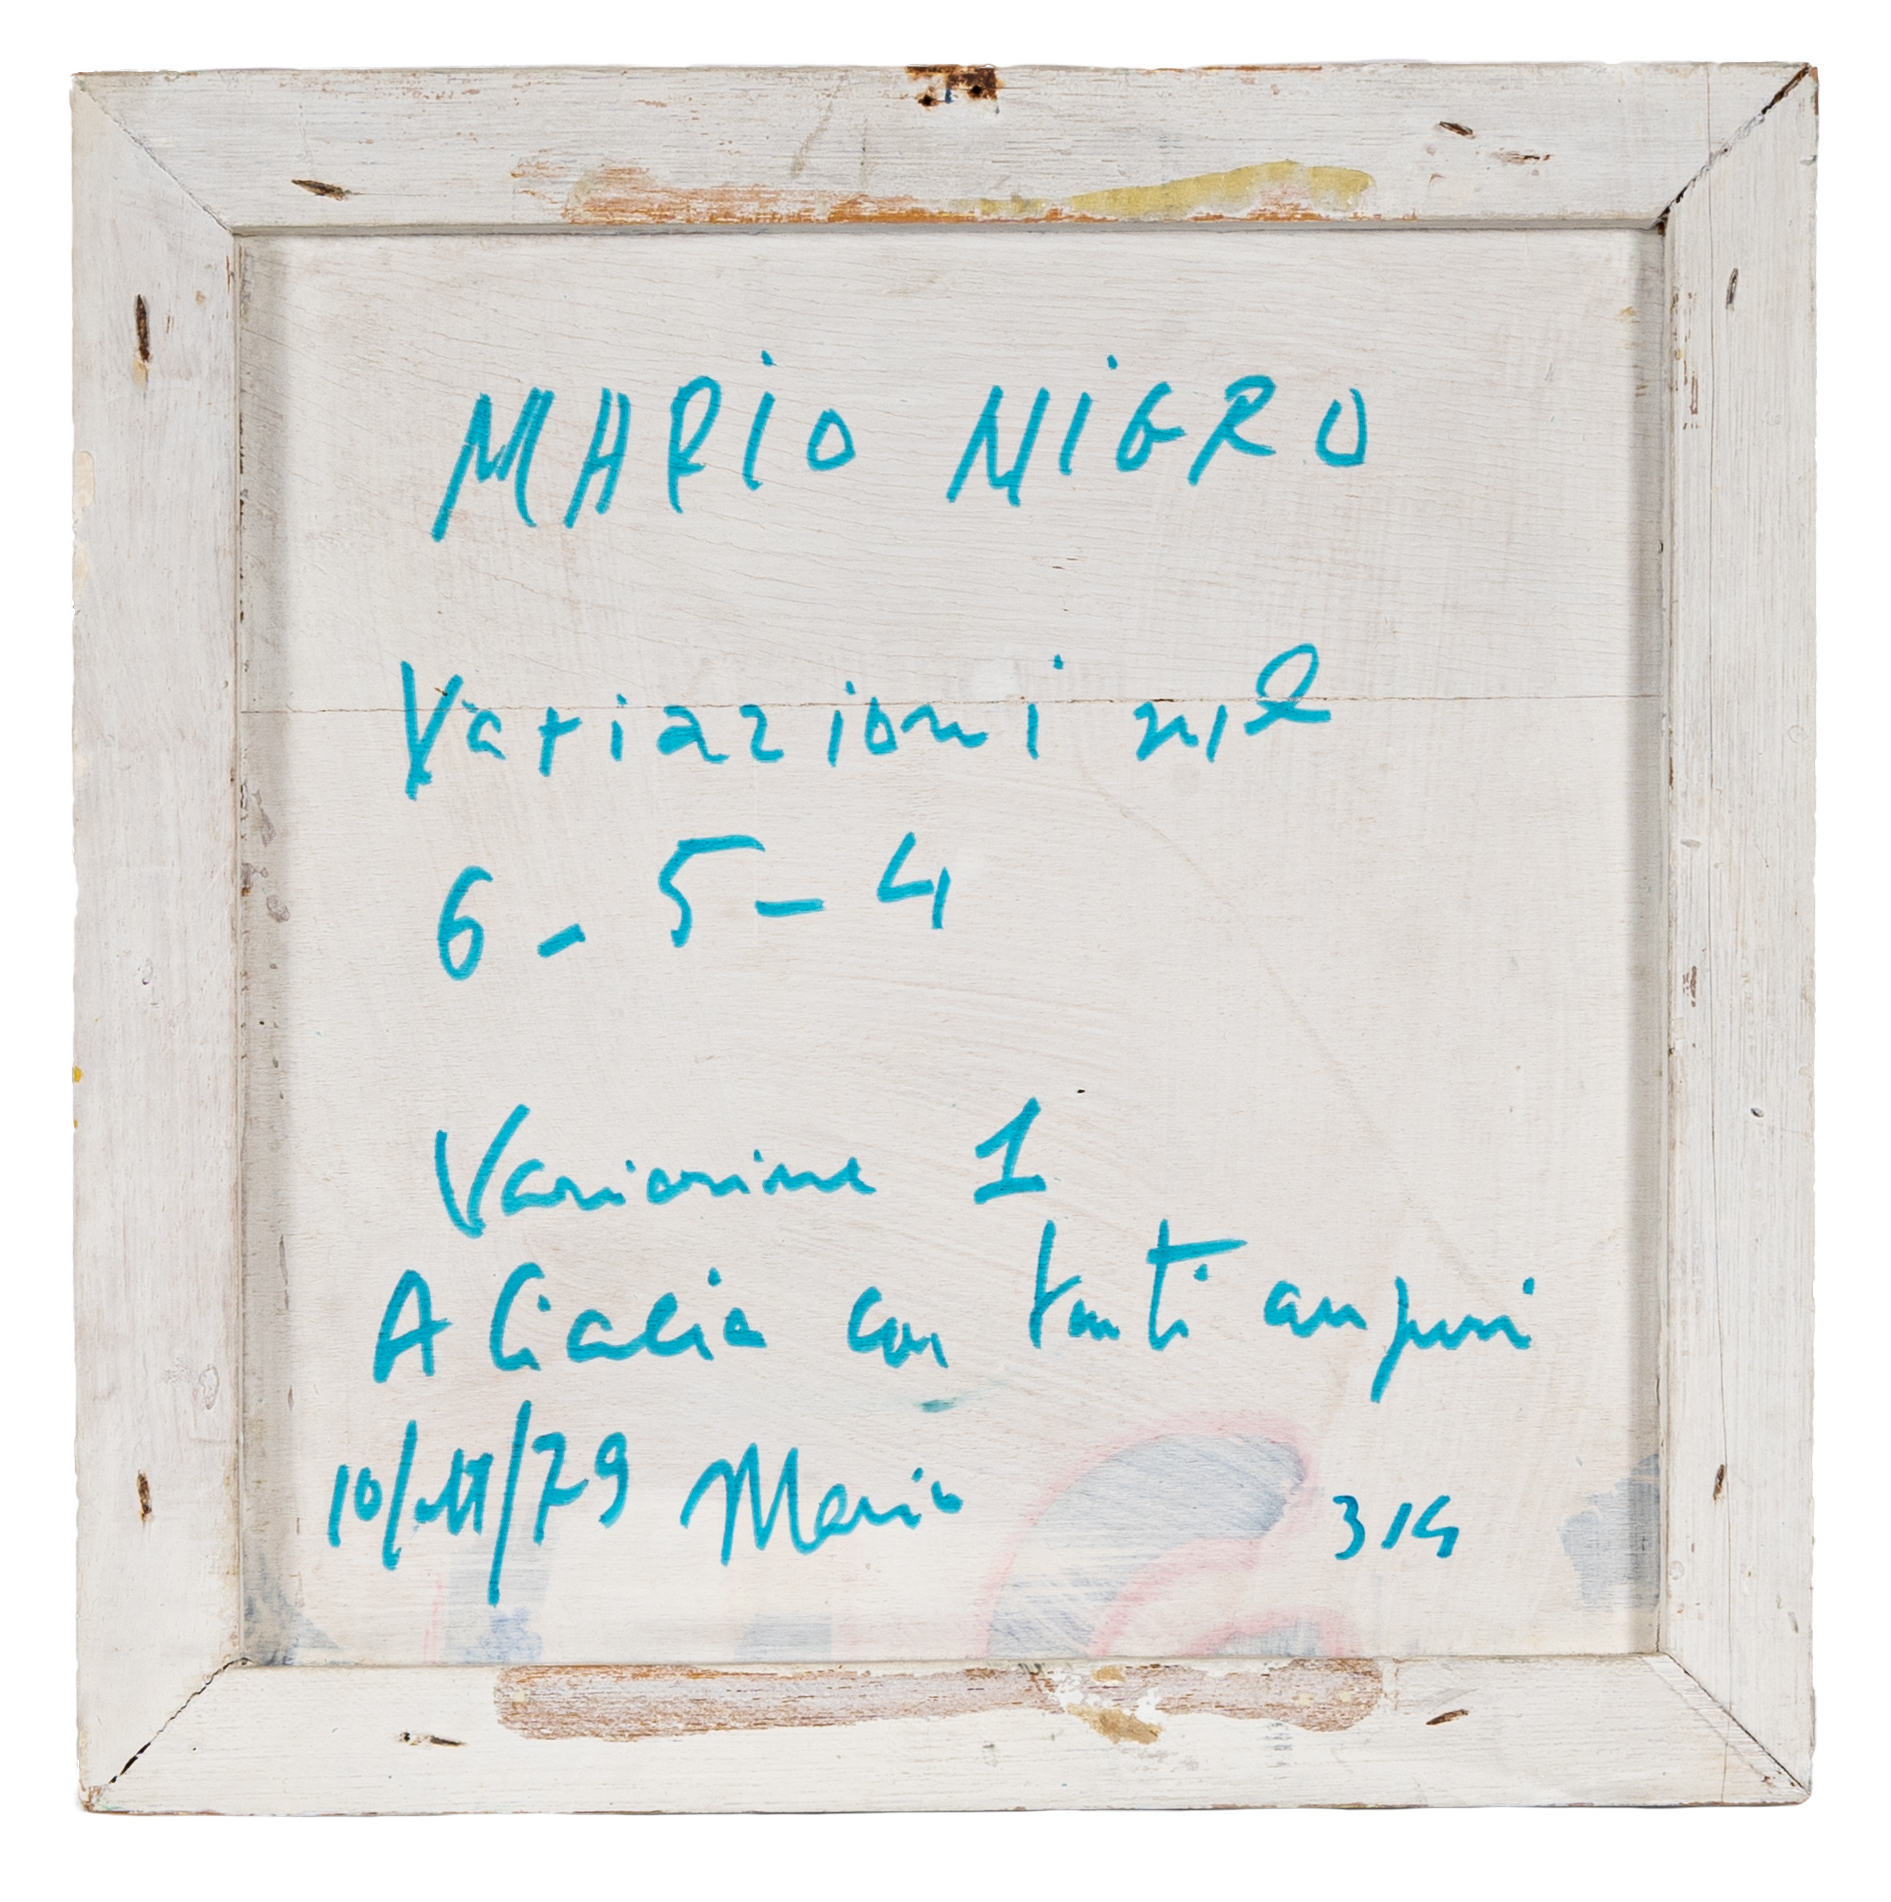 MARIO NIGRO
Variazioni sul
6 - 5 - 4
Variazione 1
A Cialia con tanti auguri
10/11/79 Mario 314